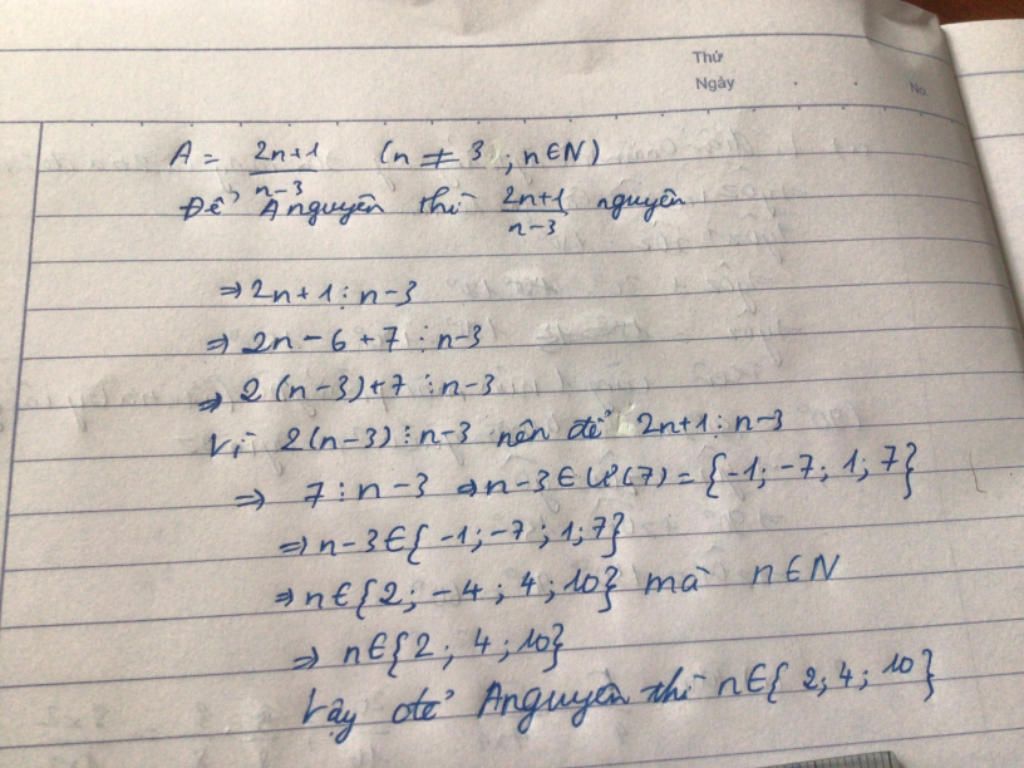 Thứ
Ngày
No.
A = \frac{2n+1}{n-3} (n ≠ 3 ; n∈N)
Để A nguyên thì \frac{2n+1}{n-3} nguyên
⇒ 2n+1 ⋮ n-3
⇒ 2n - 6 + 7 ⋮ n-3
⇒ 2(n-3)+7 ⋮ n-3
Vì 2(n-3) ⋮ n-3 nên để 2n+1 ⋮ n-3
⇒ 7 ⋮ n-3 ⇒ n-3 ∈ Ư(7) = {-1; -7; 1; 7}
⇒ n-3 ∈ {-1; -7; 1; 7}
⇒ n ∈ {2; -4; 4; 10} mà n∈N
⇒ n ∈ {2; 4; 10}
Vậy để A nguyên thì n ∈ {2; 4; 10}